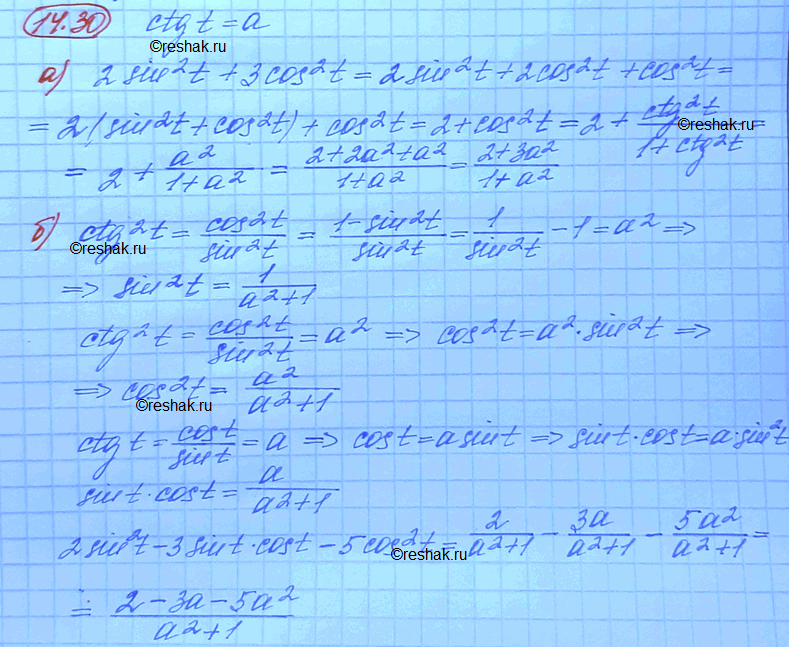 14.30 ctg t = a
©reshak.ru
а) 2 sin²t + 3cos²t = 2 sin²t + 2cos²t + cos²t =
= 2(sin²t + cos²t) + cos²t = 2 + cos²t = 2 + ctg²t / (1 + ctg²t) =
©reshak.ru
= 2 + a²/(1+a²) = (2+2a²+a²)/(1+a²) = (2+3a²)/(1+a²)
б) ctg²t = cos²t/sin²t = (1-sin²t)/sin²t = 1/sin²t - 1 = a² =>
©reshak.ru
=> sin²t = 1/(a²+1)
ctg²t = cos²t/sin²t = a² => cos²t = a²·sin²t =>
=> cos²t = a²/(a²+1)
©reshak.ru
ctg t = cost/sint = a => cost = a sint => sint·cost = a·sin²t
sint·cost = a/(a²+1)
2sin²t - 3sint·cost - 5cos²t = 2/(a²+1) - 3a/(a²+1) - 5a²/(a²+1) =
©reshak.ru
= (2-3a-5a²)/(a²+1)